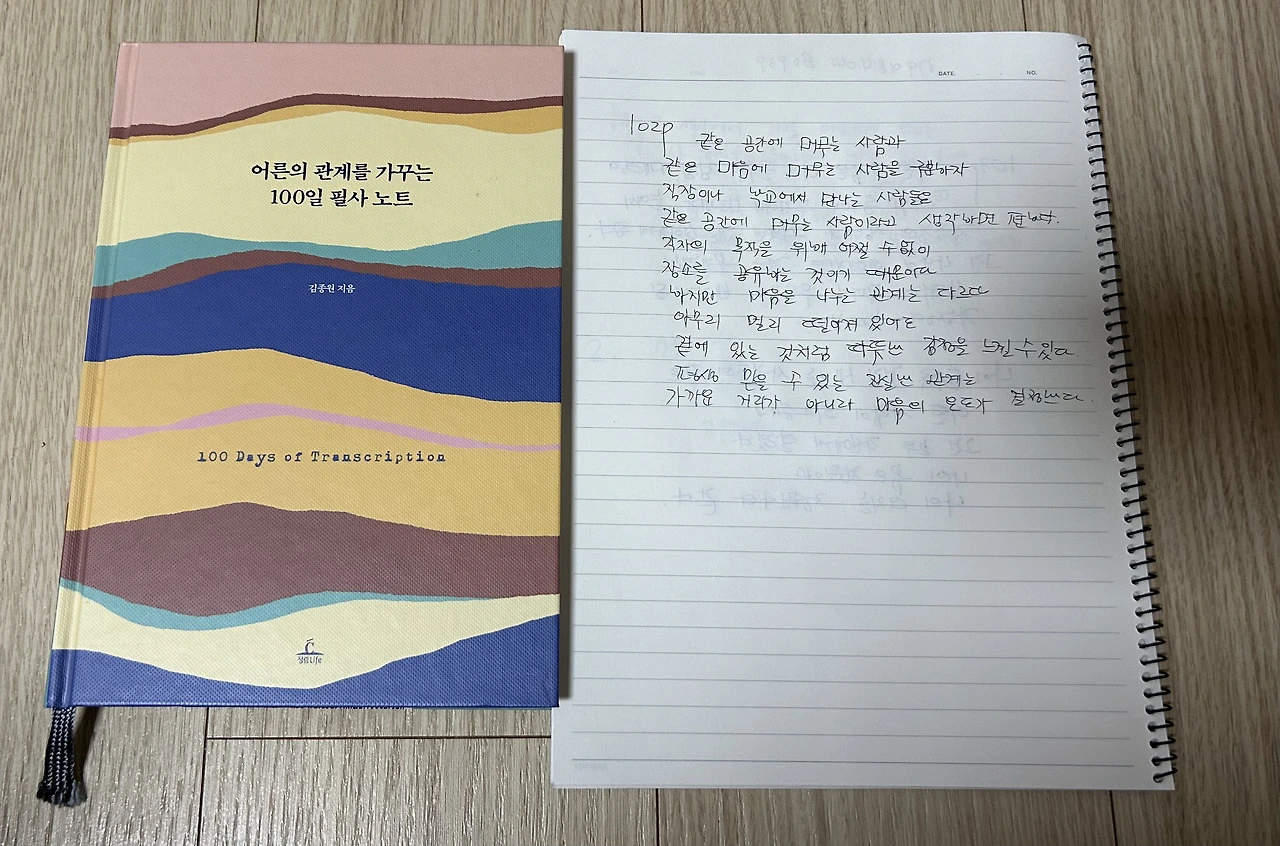 어른의 관계를 가꾸는
100일 필사 노트
김종원 지음
100 Days of Transcription
청림Life
DATE.
NO.
102p 같은 공간에 머무는 사람과
같은 마음에 머무는 사람을 구분하자
직장이나 학교에서 만나는 사람들은
같은 공간에 머무는 사람이라고 생각하면 편하다.
각자의 목적을 위해 어쩔 수 없이
장소를 공유하는 것이기 때문이다
하지만 마음을 나누는 관계는 다르다
아무리 멀리 떨어져 있어도
곁에 있는 것처럼 따뜻한 감정을 느낄 수 있다.
평생 믿을 수 있는 진실한 관계는
가까운 거리가 아니라 마음의 온도가 결정한다.